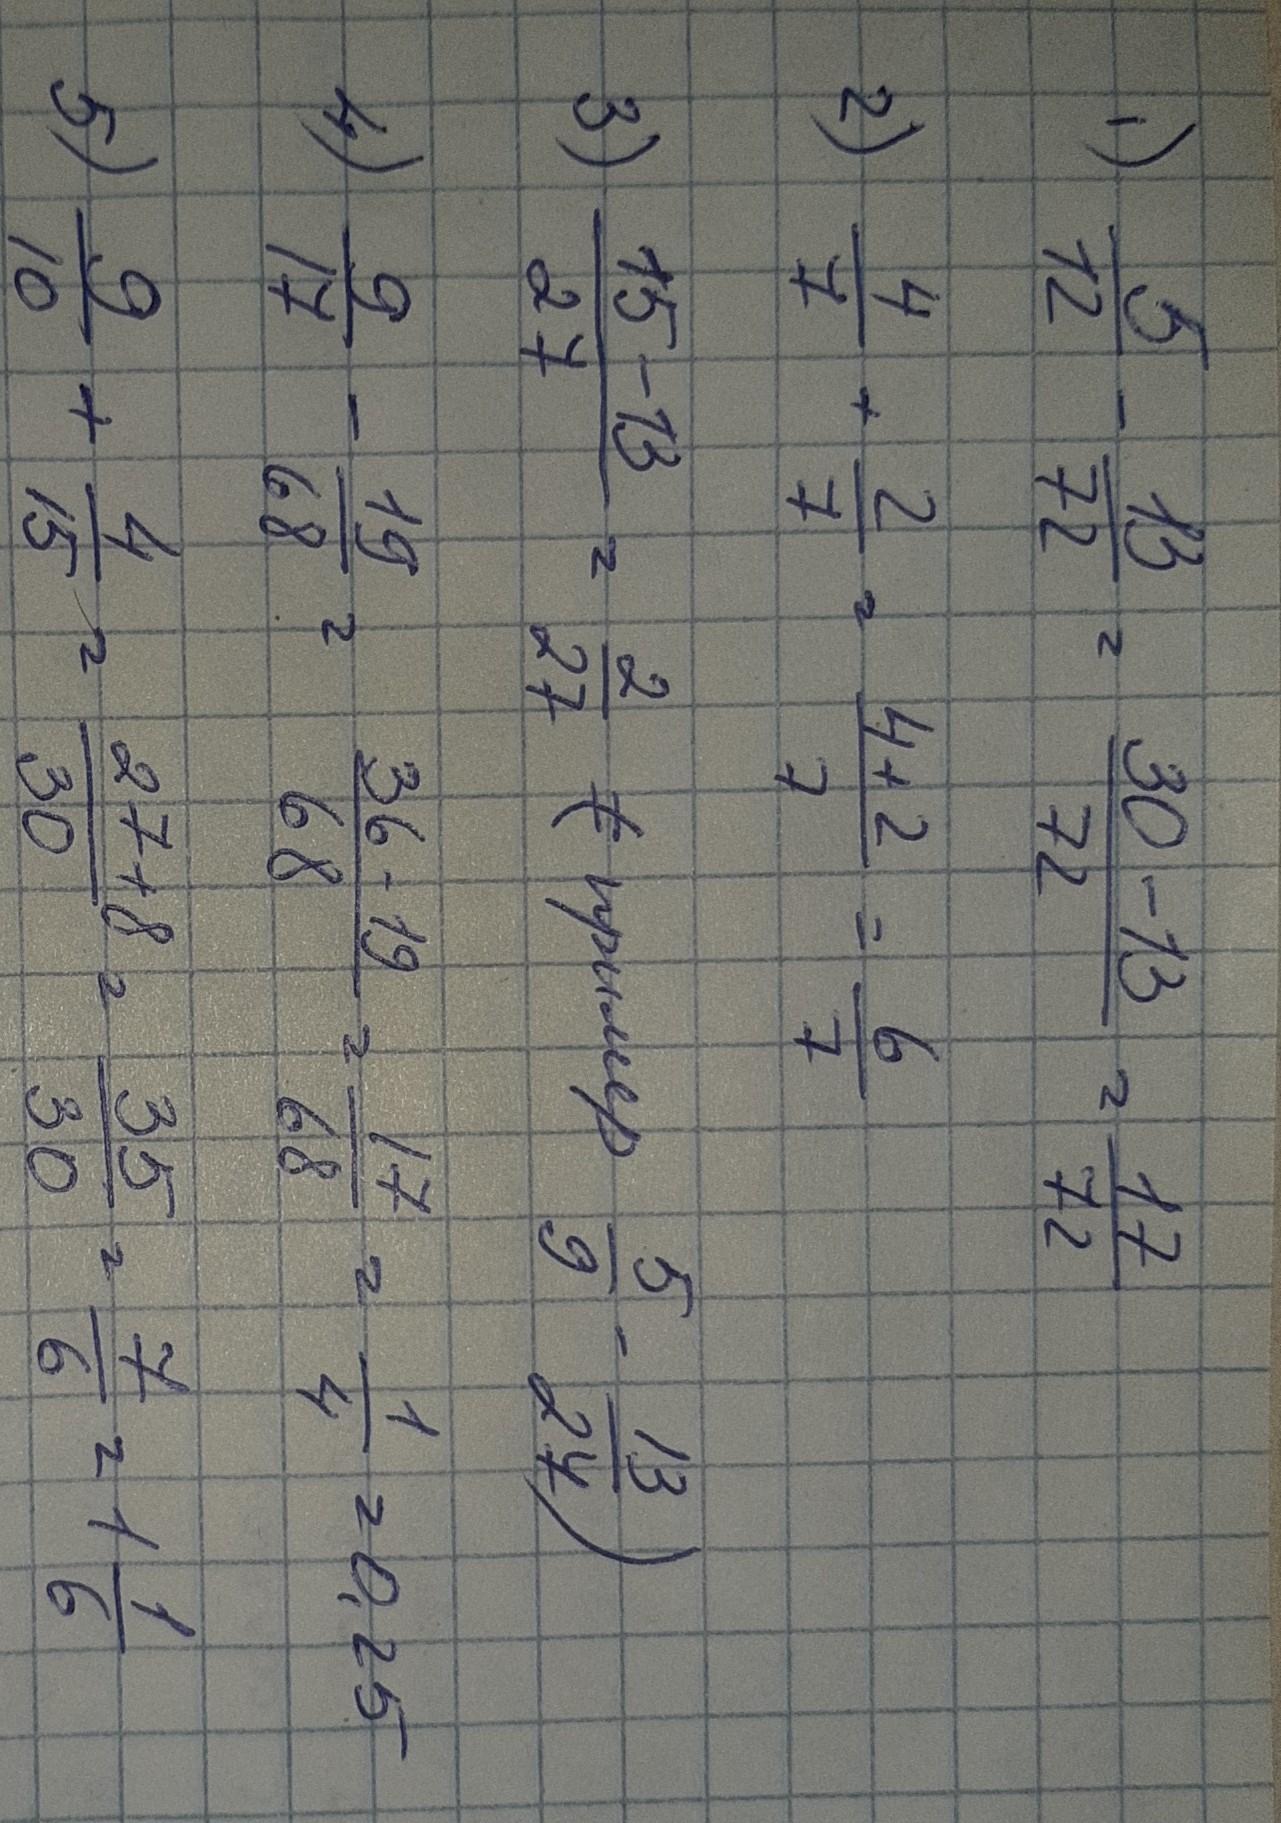 1) 5/12 - 13/72 = 30-13/72 = 17/72
2) 4/7 + 2/7 = 4+2/7 = 6/7
3) 15-13/27 = 2/27 (пример 5/9 - 13/27)
4) 9/17 - 19/68 = 36-19/68 = 17/68 = 1/4 = 0,25
5) 9/10 + 4/15 = 27+8/30 = 35/30 = 7/6 = 1 1/6